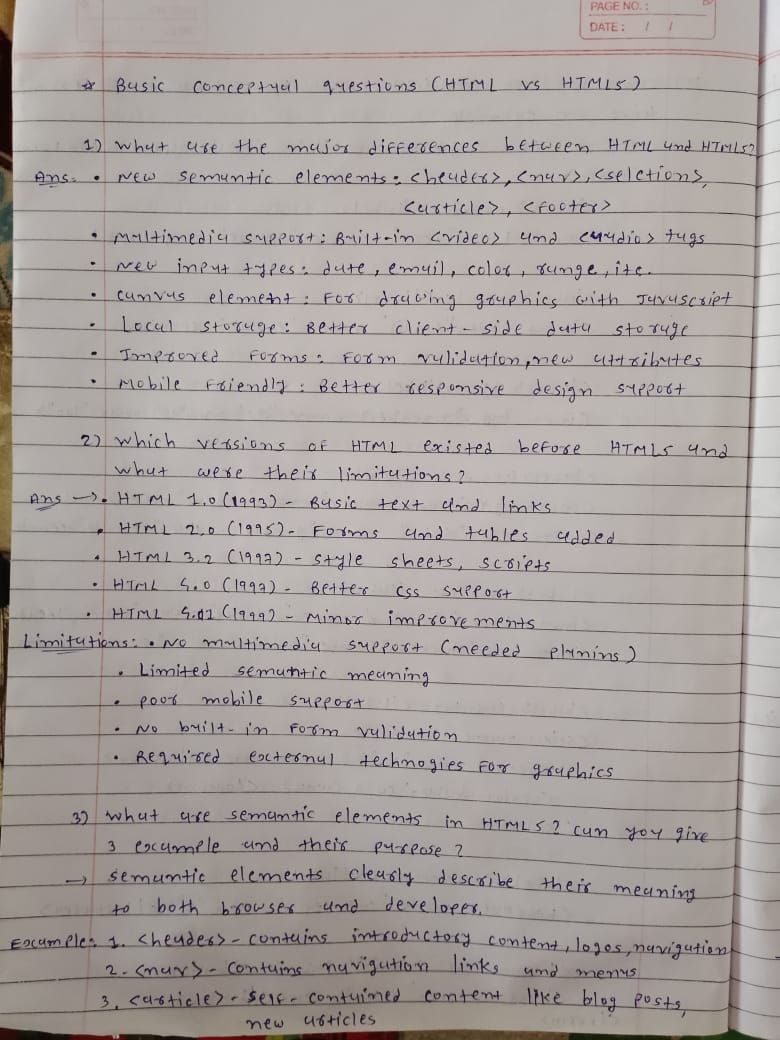 PAGE NO.:
DATE: / /
* Basic conceptual questions (HTML vs HTML5)
1) What are the major differences between HTML and HTML5?
Ans:- • New semantic elements: <header>, <nav>, <selction>,
<article>, <footer>
• Multimedia support: Built-in <video> and <audio> tags
• New input types: date, email, color, range, itc.
• Canvas element: For drawing graphics with Javascript
• Local storage: Better client-side data storage
• Improved Forms: Form validation, new attributes
• Mobile Friendly: Better responsive design support
2) Which versions of HTML existed before HTML5 and
what were their limitations?
Ans → • HTML 1.0 (1993) - Basic text and links
• HTML 2.0 (1995) - Forms and tables added
• HTML 3.2 (1997) - Style sheets, scripts
• HTML 4.0 (1997) - Better CSS support
• HTML 4.01 (1999) - Minor improvements
Limitations: • No multimedia support (needed plunins)
• Limited semantic meaning
• poor mobile support
• No built-in Form validation
• Required external technogies For graphics
3) What are semantic elements in HTML5? can you give
3 example and their purpose?
→ semantic elements clearly describe their meaning
to both browser and developer.
Example: 1. <header> - contains introductory content, logos, navigation
2. <nav> - contains navigation links and menus
3. <article> - self-contained content like blog posts,
new articles